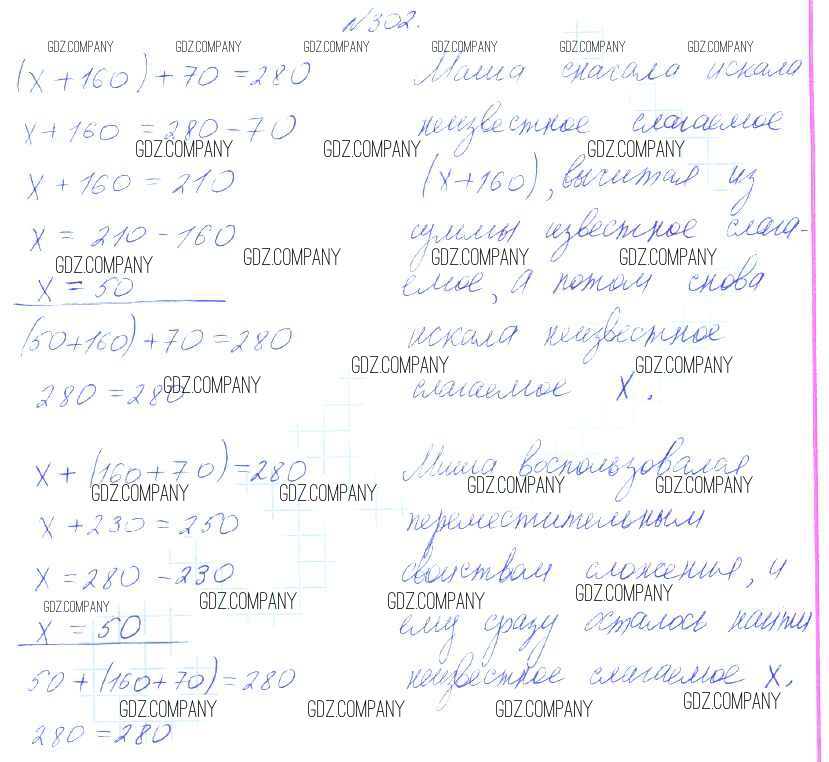 №302.
GDZ.COMPANY GDZ.COMPANY GDZ.COMPANY GDZ.COMPANY GDZ.COMPANY GDZ.COMPANY
(x+160)+70=280 Маша сначала искала
x+160=280-70 неизвестное слагаемое
GDZ.COMPANY GDZ.COMPANY GDZ.COMPANY
x+160=210 (x+160), вычитая из
x=210-160 суммы известное слага-
GDZ.COMPANY GDZ.COMPANY GDZ.COMPANY GDZ.COMPANY
x=50 емое, а потом снова
(50+160)+70=280 искала неизвестное
GDZ.COMPANY GDZ.COMPANY
280=280 слагаемое x.
GDZ.COMPANY
x+(160+70)=280 Миша воспользовался
GDZ.COMPANY GDZ.COMPANY GDZ.COMPANY GDZ.COMPANY
x+230=250 переместительным
x=280-230 свойством сложенья, и
GDZ.COMPANY GDZ.COMPANY GDZ.COMPANY GDZ.COMPANY
x=50 ему сразу осталось найти
50+(160+70)=280 неизвестное слагаемое x.
GDZ.COMPANY GDZ.COMPANY GDZ.COMPANY GDZ.COMPANY
280=280